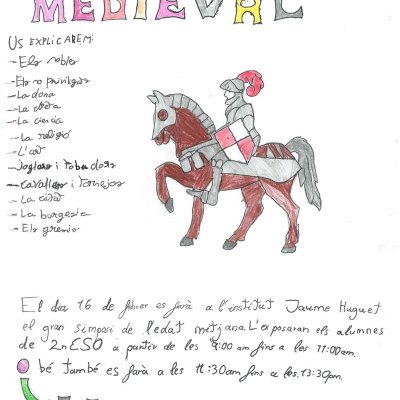 MEDIEVAL
US EXPLICAREM:
- Els nobles
- Els no privilegiats
- La dona
- La
- La ciencia
- La religió
- L'art
- Joglars i trobadors
- Cavallers i Tornejos
- La ciutat
- La burgesia
- Els gremis
El dia 16 de febrer es farà a l'institut Jaume Huguet
el gran simposi de l'edat mitjana. L'exposaran els alumnes
de 2n ESO a partir de les 9:00 am fins a les 11:00 am.
O bé també es farà a les 11:30 am fins a les 13:30 pm.